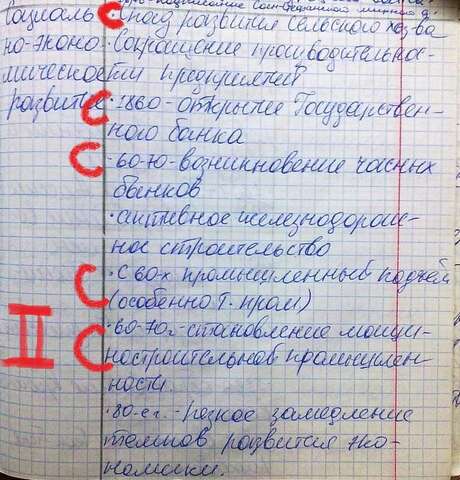 социаль- · спад развития сельского хоз-ва
но-эконо- · Сокращение производительнос-
мическое ти предприятий
развитие · 1860 - открытие Государствен-
ного банка
· 60-ю - возникновение часных
банков
· активное железнодорож-
ное строительство
· С 60-х промышленный подъём
(особенно т. пром)
II · 60-70г - становление машин-
ностроительной промышлен-
ности.
· 80-ег. - резкое замедление
темпов развития эко-
номики.